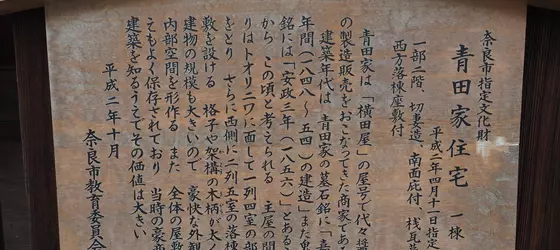 奈良市指定文化財
青田家住宅 一棟
平成二年四月十一日指定
一部二階、切妻造、南面庇付、桟瓦
西方落棟座敷付
青田家は「横田屋」の屋号で代々
の製造販売をおこなってきた商家であ
建築年代は 青田家の墓石銘に「嘉
年間(一八四八～五四)の建造」また
銘には「安政三年(一八五六)」とある
から この頃と考えられる 主屋の間
りはトオリニワに面して一列四室の部
をとり さらに西側に二列五室の落棟
敷を設ける 格子や架構の木柄が太
建物の規模も大きいので 豪快な外観
内部空間を形作る また 全体の屋敷
そもよく保存されており 当時の豪商
建築を知るうえでその価値は大きい
平成二年十月
奈良市教育委員会